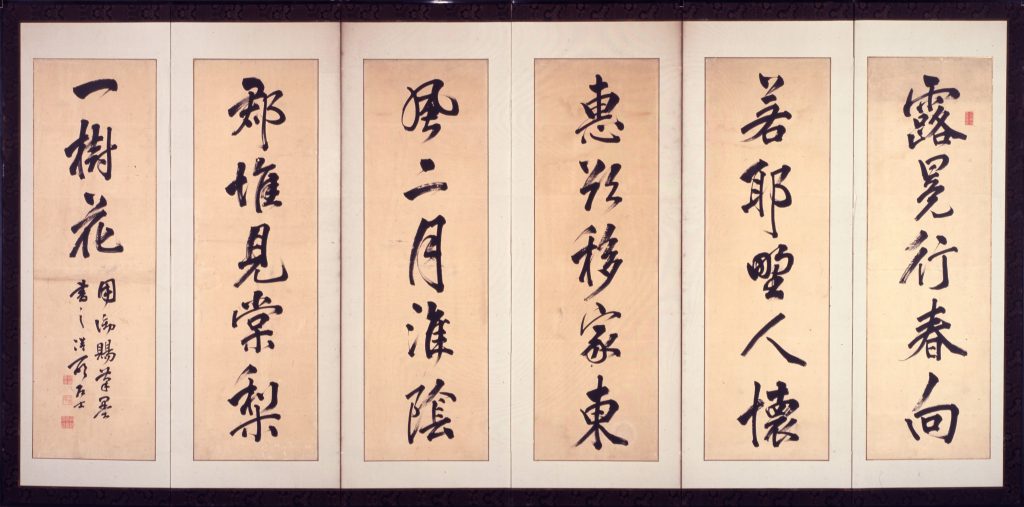 露冕行春向
若耶野人懷
惠欲移家東
風二月淮陰
郡惟見棠梨
一樹花
用御賜筆墨
書之 居士